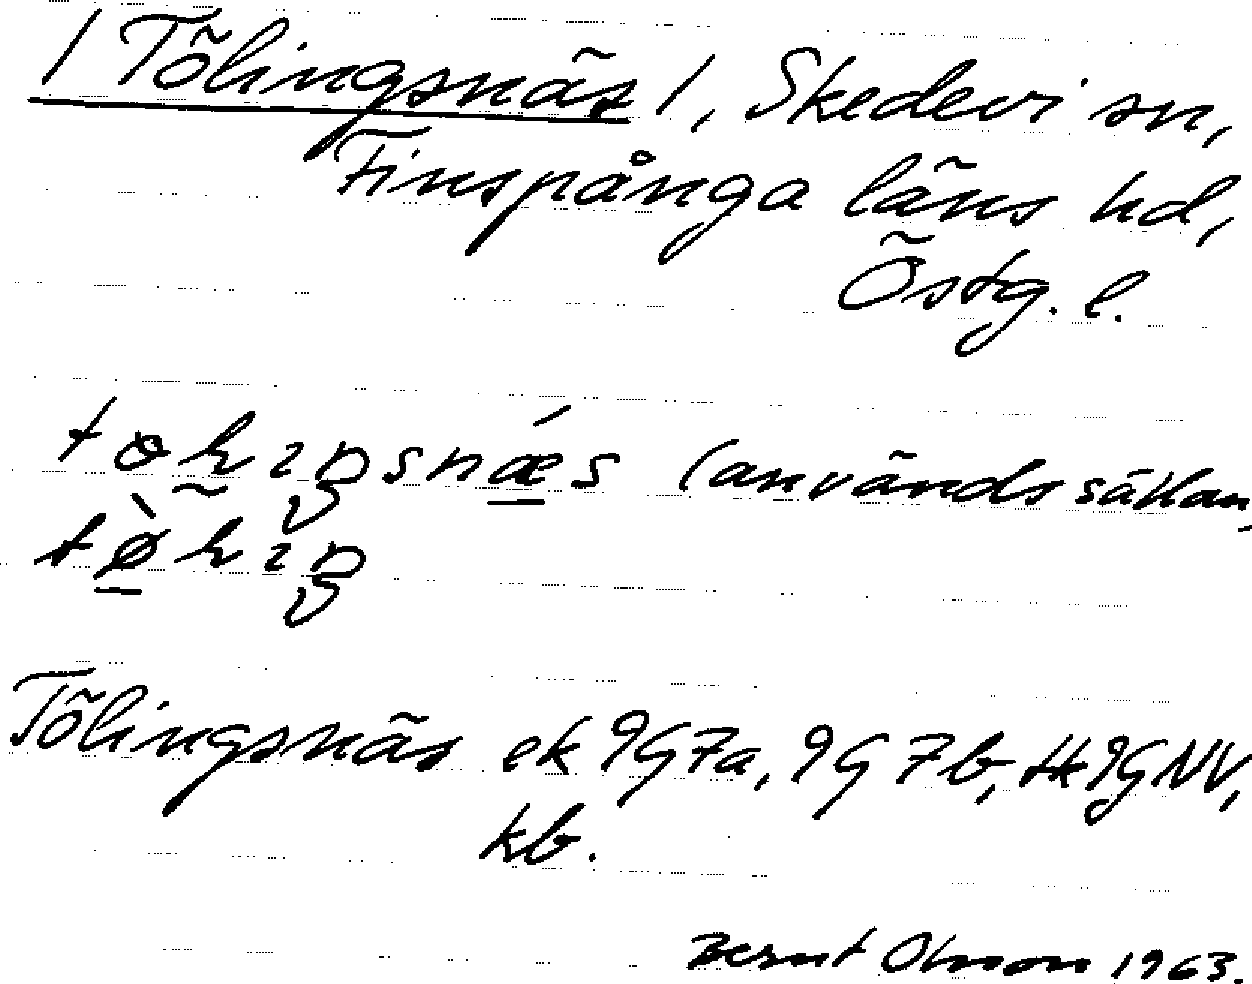 /Tölingsnäs/, Skedevi sn,
Finspånga läns hd,
Östg. l.
(används sällan)
Tölingsnäs ek 9G7a, 9G7b, Hk 9GNV,
kb.
Bernt Olsson 1963.